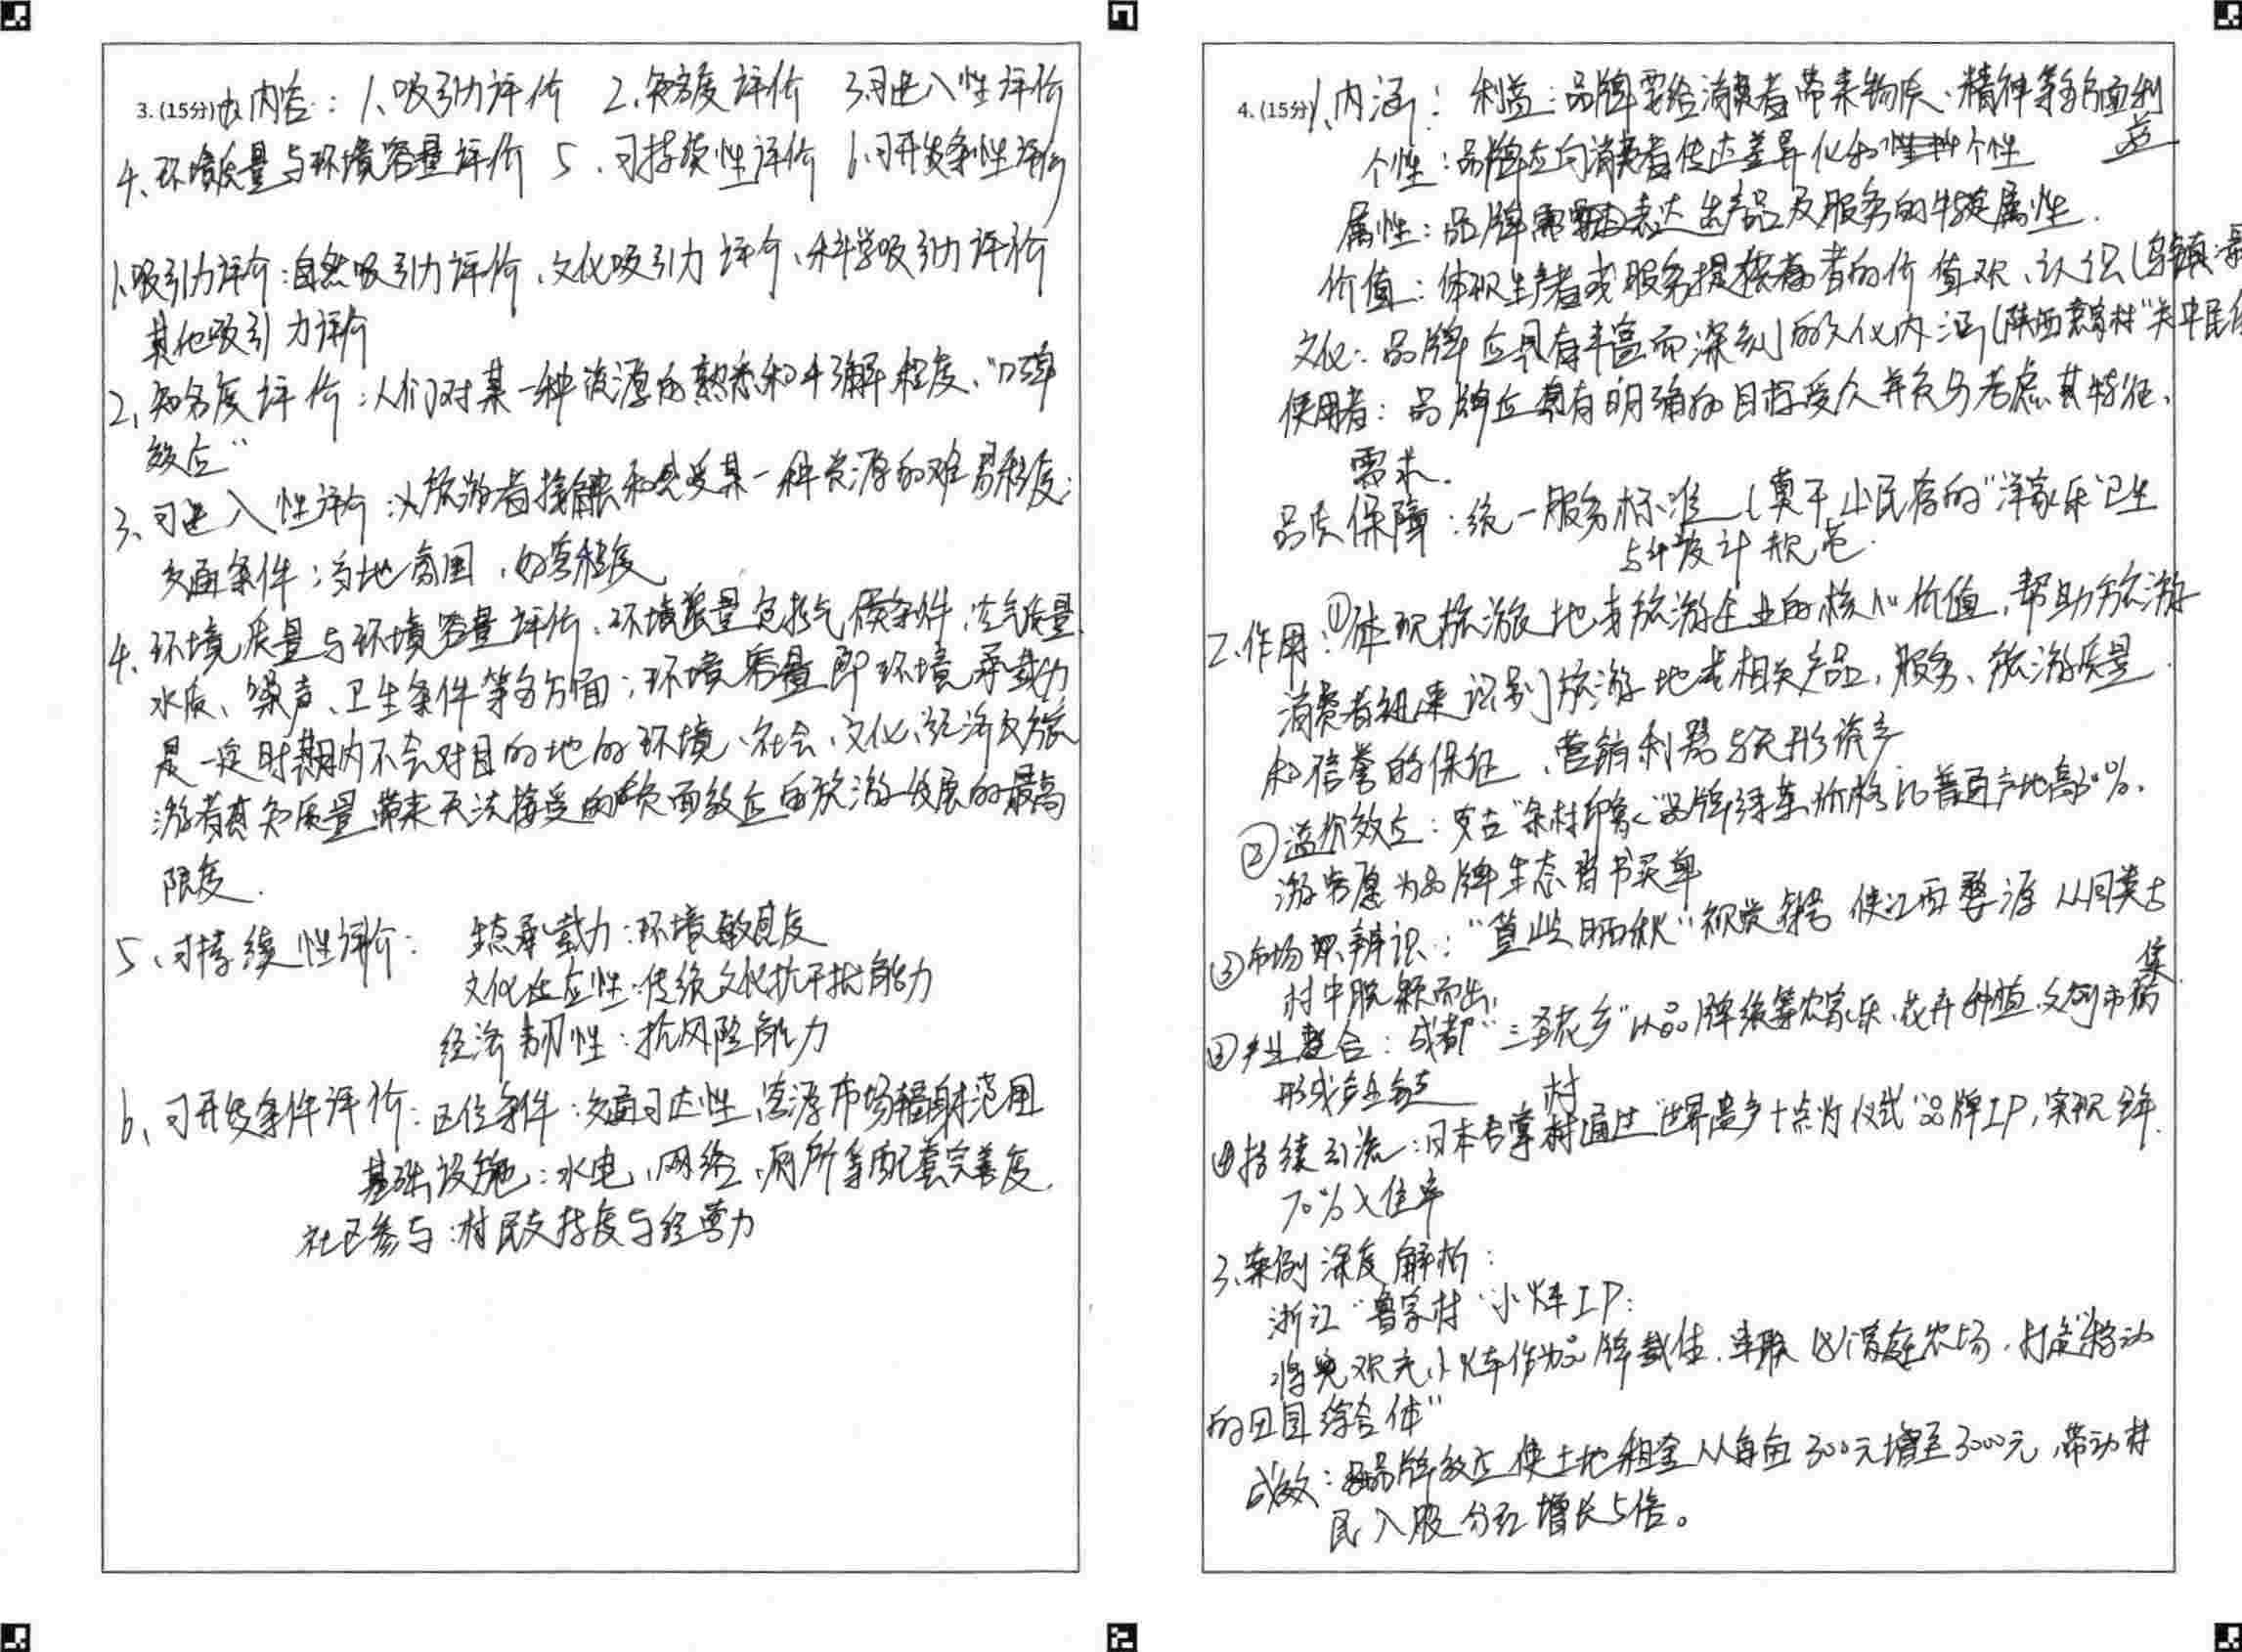 3. (15分) 内容：1、吸引力评价 2、知名度评价 3、可进入性评价
4、环境质量与环境容量评价 5、可持续性评价 6、可开发条件性评价
1、吸引力评价：自然吸引力评价、文化吸引力评价、科学吸引力评价
其他吸引力评价
2、知名度评价：人们对某一种资源的熟悉和了解程度、"口碑
效应"
3、可进入性评价：旅游者接触和感受某一种资源的难易程度；
交通条件；当地氛围、好客程度
4、环境质量与环境容量评价、环境质量包括气候条件、空气质量、
水质、噪声、卫生条件等多方面；环境容量即环境承载力
是一定时期内不会对目的地的环境、社会、文化、经济及旅
游者感知质量带来无法接受的负面效应的旅游发展的最高
限度.
5、可持续性评价： 生态承载力：环境敏感度
文化适应性：传统文化抗干扰能力
经济韧性：抗风险能力
6、可开发条件评价：区位条件：交通可达性、客源市场辐射范围
基础设施：水电、网络、厕所等配套完善度.
社区参与：村民支持度与经营力
4. (15分) 1、内涵：利益：品牌要给消费者带来物质、精神等多方面利
益
个性：品牌应向消费者传达差异化和个性
属性：品牌需要表达出产品及服务的特定属性.
价值：体现生产者或服务提供者的价值观、认识(乌镇
文化：品牌应具有丰富而深刻的文化内涵(陕西袁家村"关中民俗
使用者：品牌应具有明确的目标受众并充分考虑其特征、
需求.
品质保障：统一服务标准(莫干山民宿的"洋家乐"卫生
与设计规范.
2、作用：①体现旅游地或旅游企业的核心价值，帮助旅游
消费者识别旅游地或相关产品、服务、旅游质量
和信誉的保证、营销利器与无形资产
②溢价效应："余村印象"品牌绿茶价格比普通产地高30%、
游客愿为品牌生态背书买单
③市场辨识："篁岭晒秋"视觉符号使江西婺源从同类古
村中脱颖而出.
③产业整合：成都"三圣花乡"以品牌统筹农家乐、花卉种植、文创市
集
形成产业链
④持续引流：日本合掌村通过"世界遗产+点灯仪式"品牌IP，实现全年
70%入住率
3、案例深度解析：
浙江"鲁家村"小火车IP：
将观光小火车作为品牌载体、串联18个家庭农场、打造"移动
的田园综合体"
成效：品牌效应使土地租金从每亩300元增至3000元，带动村
民入股分红增长5倍。